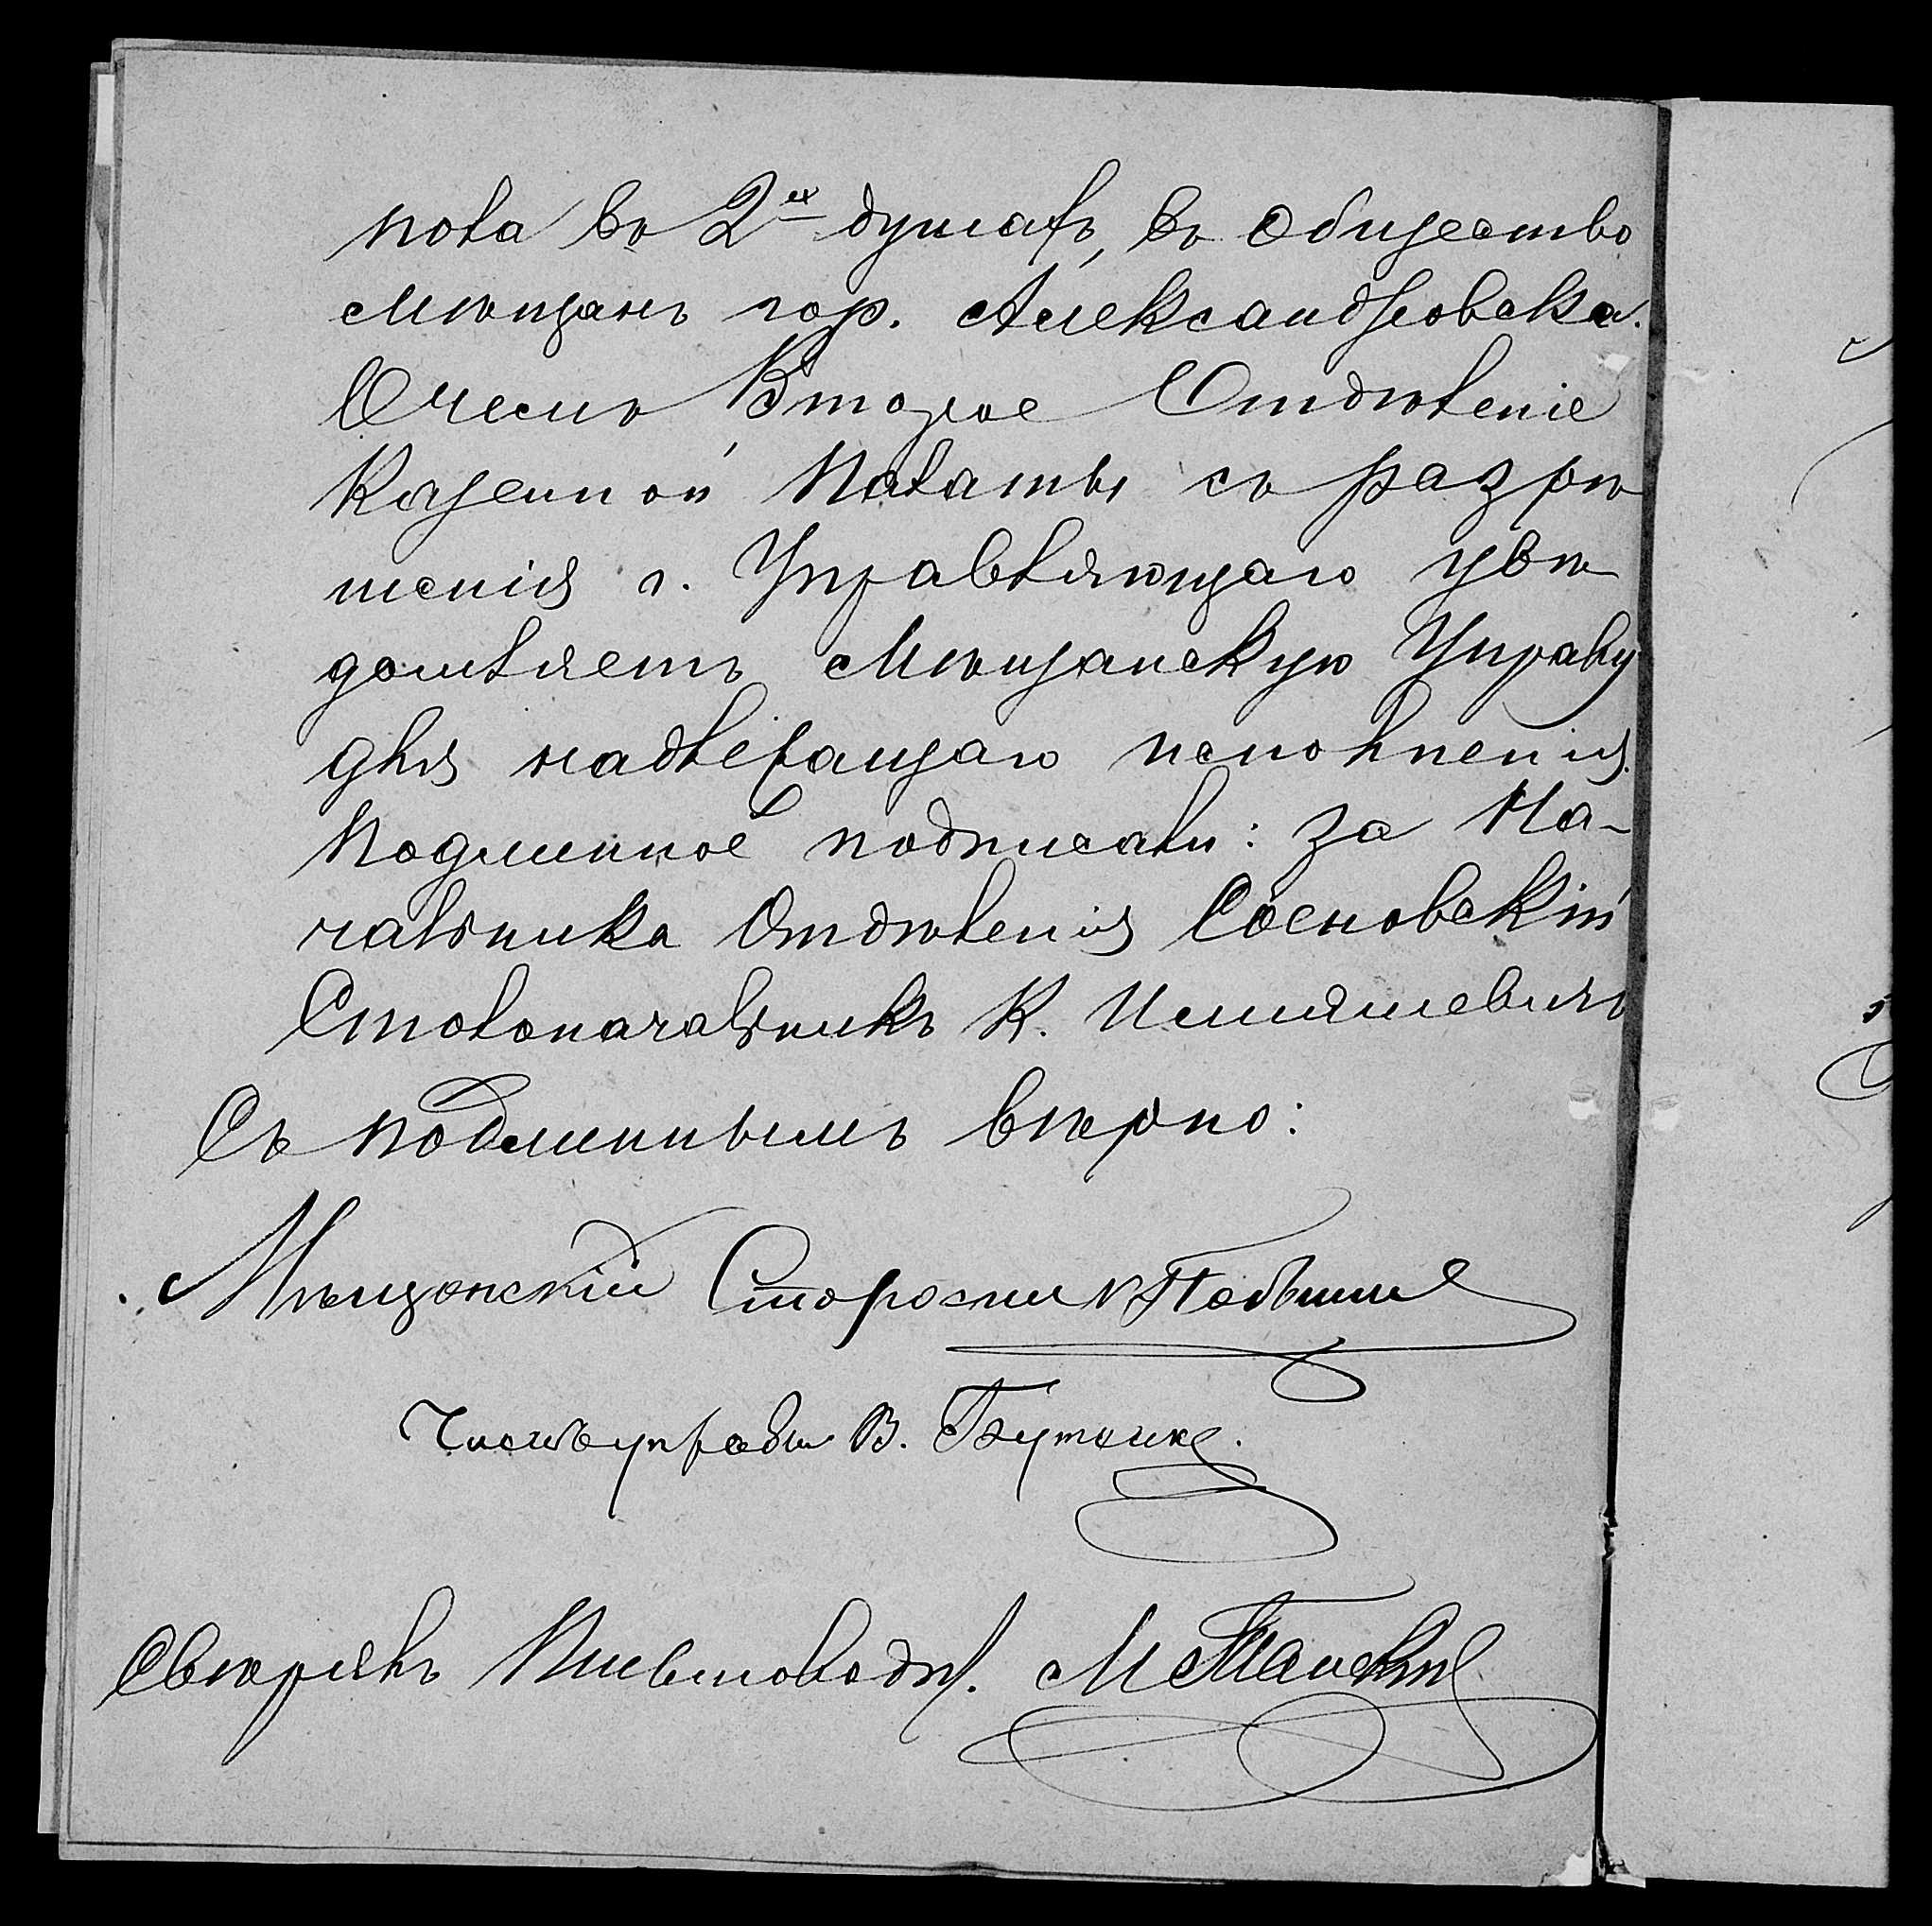 пола въ 2хъ душахъ, въ общество
Мѣщанъ гор. Александровска.
О чемъ Второе Отдѣленіе
Казенной Палаты съ разрѣ
шенія г. Управляющаго увѣ
домляетъ Мѣщанскую Управу
для надлежащаго исполненія.
Подлинное подписали: За На-
чальника Отдѣленія Сосновскій
Столоначальникъ К.
Съ подлиннымъ вѣрно:
Мѣщанскій Староста
Членъ управы В. Бутенко.
Свѣрялъ Письмоводит. М